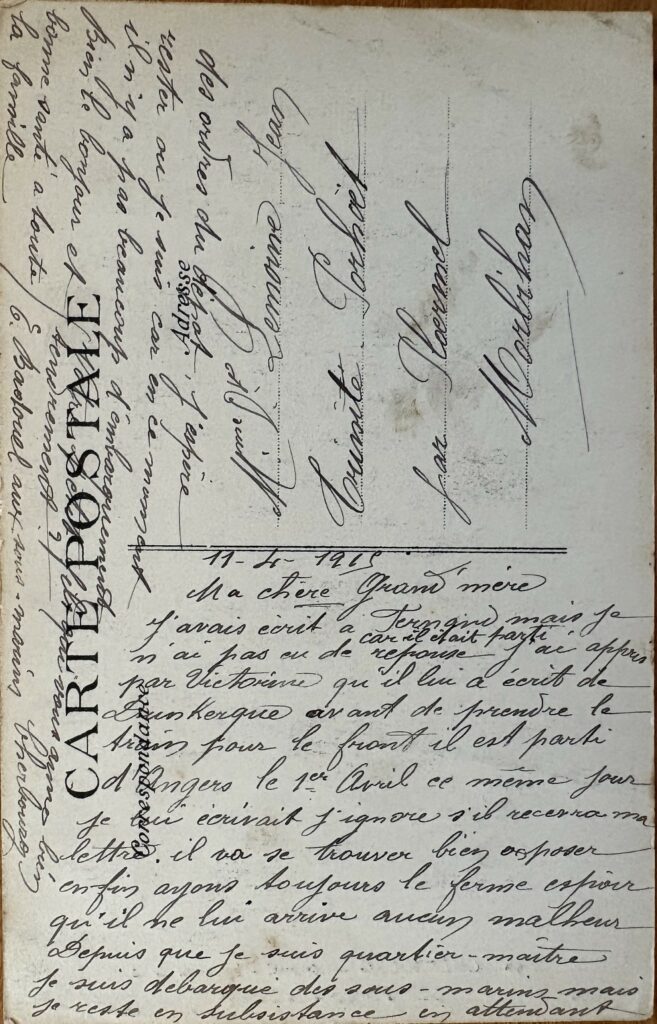 CARTE POSTALE
Correspondance
Adresse
11-4-1915
Ma chère Grand'mère
J'avais écrit a mais je
n'ai pas eu de reponse car il était parti j'ai appris
par Victorine qu'il lui a écrit de
Dunkerque avant de prendre le
train pour le front il est parti
d'Angers le 1er Avril ce même jour
je lui écrivait j'ignore s'il recevra ma
lettre. il va se trouver bien exposer
enfin ayons toujours le ferme espoir
qu'il ne lui arrive aucun malheur
Depuis que je suis quartier-maître
je suis debarque des sous-marins mais
je reste en subsistance en attendant
des ordres du dépot, j'espère
rester ou je suis car en ce moment
il n'y a pas beaucoup d'embarquement
Bien le bonjour et
bonne santé a toute
la famille
tendrement
E. aux sous-marins Cherbourg
Jean
Trinité Porhoët
par Ploermel
Morbihan